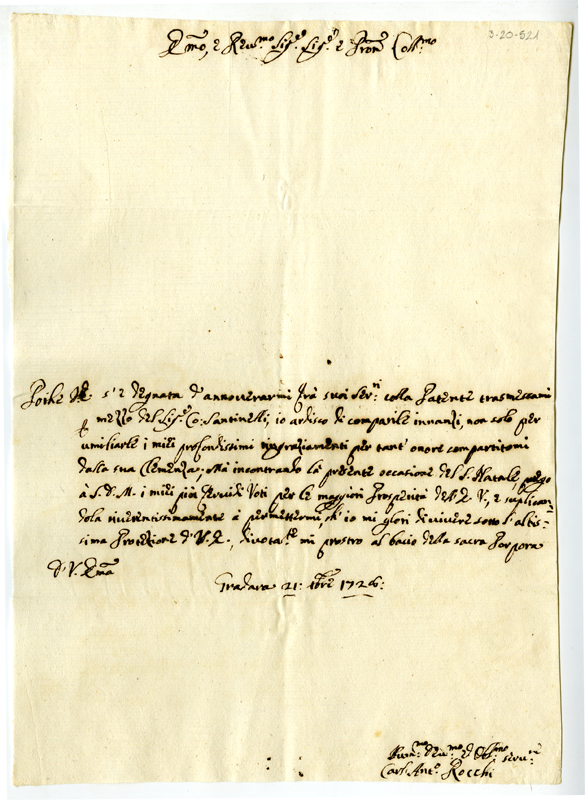 3-20-521
Emo, e Reu.mo Sig.r Sig.r e Pron Coll.mo
Poiche V.E. s'è degnata d'annouerarmi frà suoi Ser.ri colla Patente trasmessami
p mezzo del Sig.r Co: Santinelli, io ardisco di comparile innanzi, non solo per
umiliarle i miei profondissimi ringraziamenti per tant' onore compartitomi
dalla sua Clemenza; Mà incontrando la presente occasione del S. Natale, porgo
à S. D. M. i miei più feruidi Voti per le maggiori Prosperità dell' E. V., e suplican=
dola riuerentissimamente à permettermi, ch' io mi glorj di viuere sotto l'altis=
sima Protezione d' V. E., diuotam.te mi prostro al bacio della sacra Porpora
d' V. Emza
Gradara 21: Xbre 1726:
Um.mo Deu.mo ed Obl.mo seru.re
Carl' Ant.o Rocchi